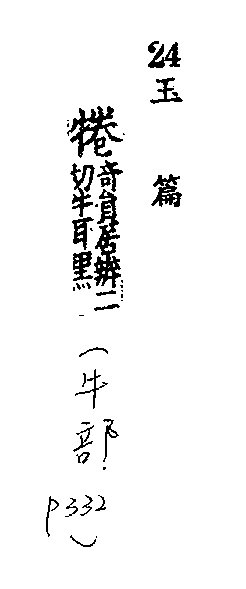 24
玉篇
犈奇員居辨二
切牛耳黑
(牛部.
P332)